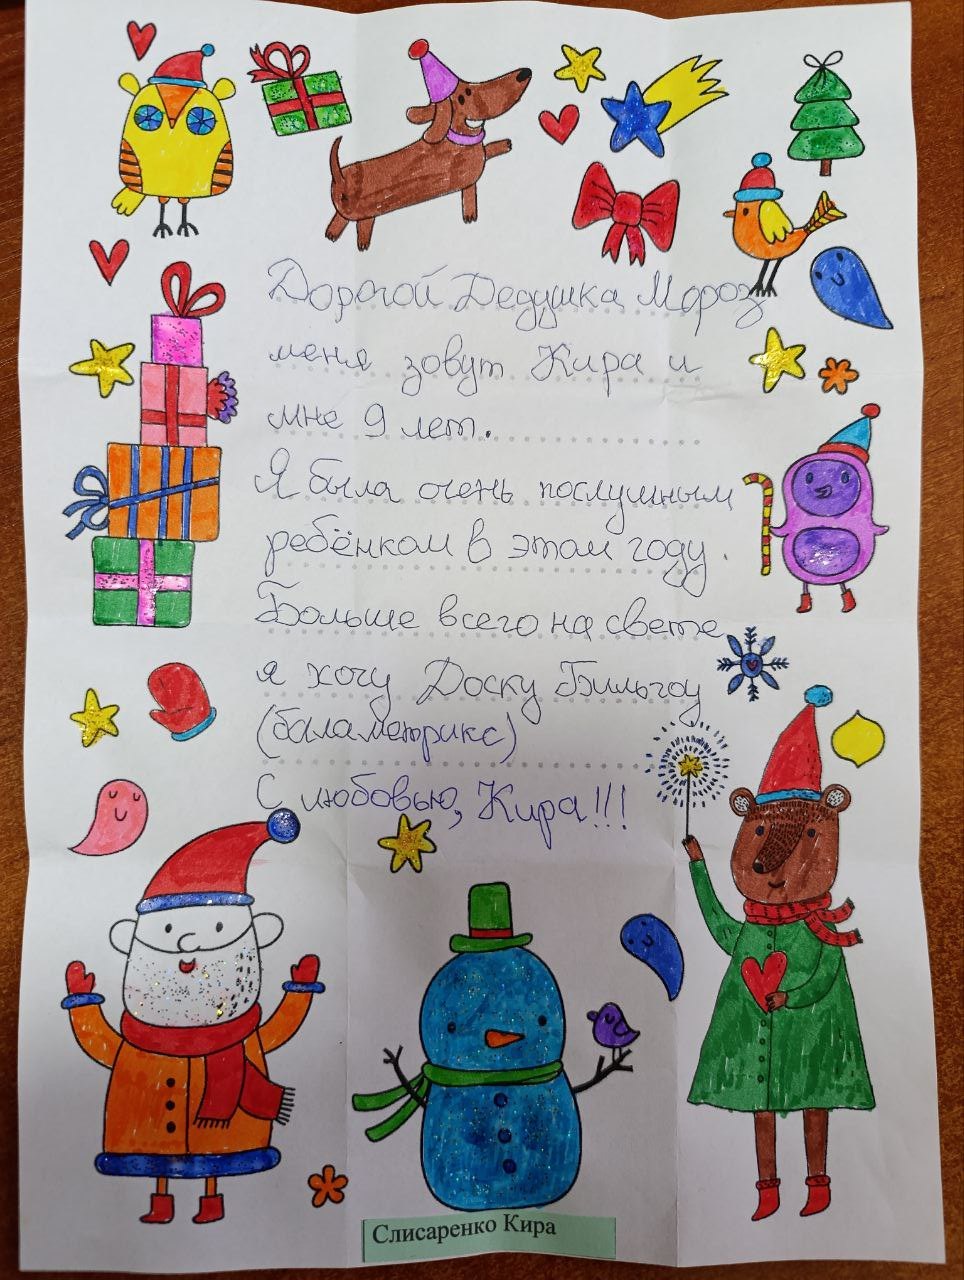 Дорогой Дедушка Мороз
меня зовут Кира и
мне 9 лет.
Я была очень послушным
ребёнком в этом году.
Больше всего на свете
я хочу Доску Бильгоу
(баламетрикс)
С любовью, Кира!!!
Слисаренко Кира